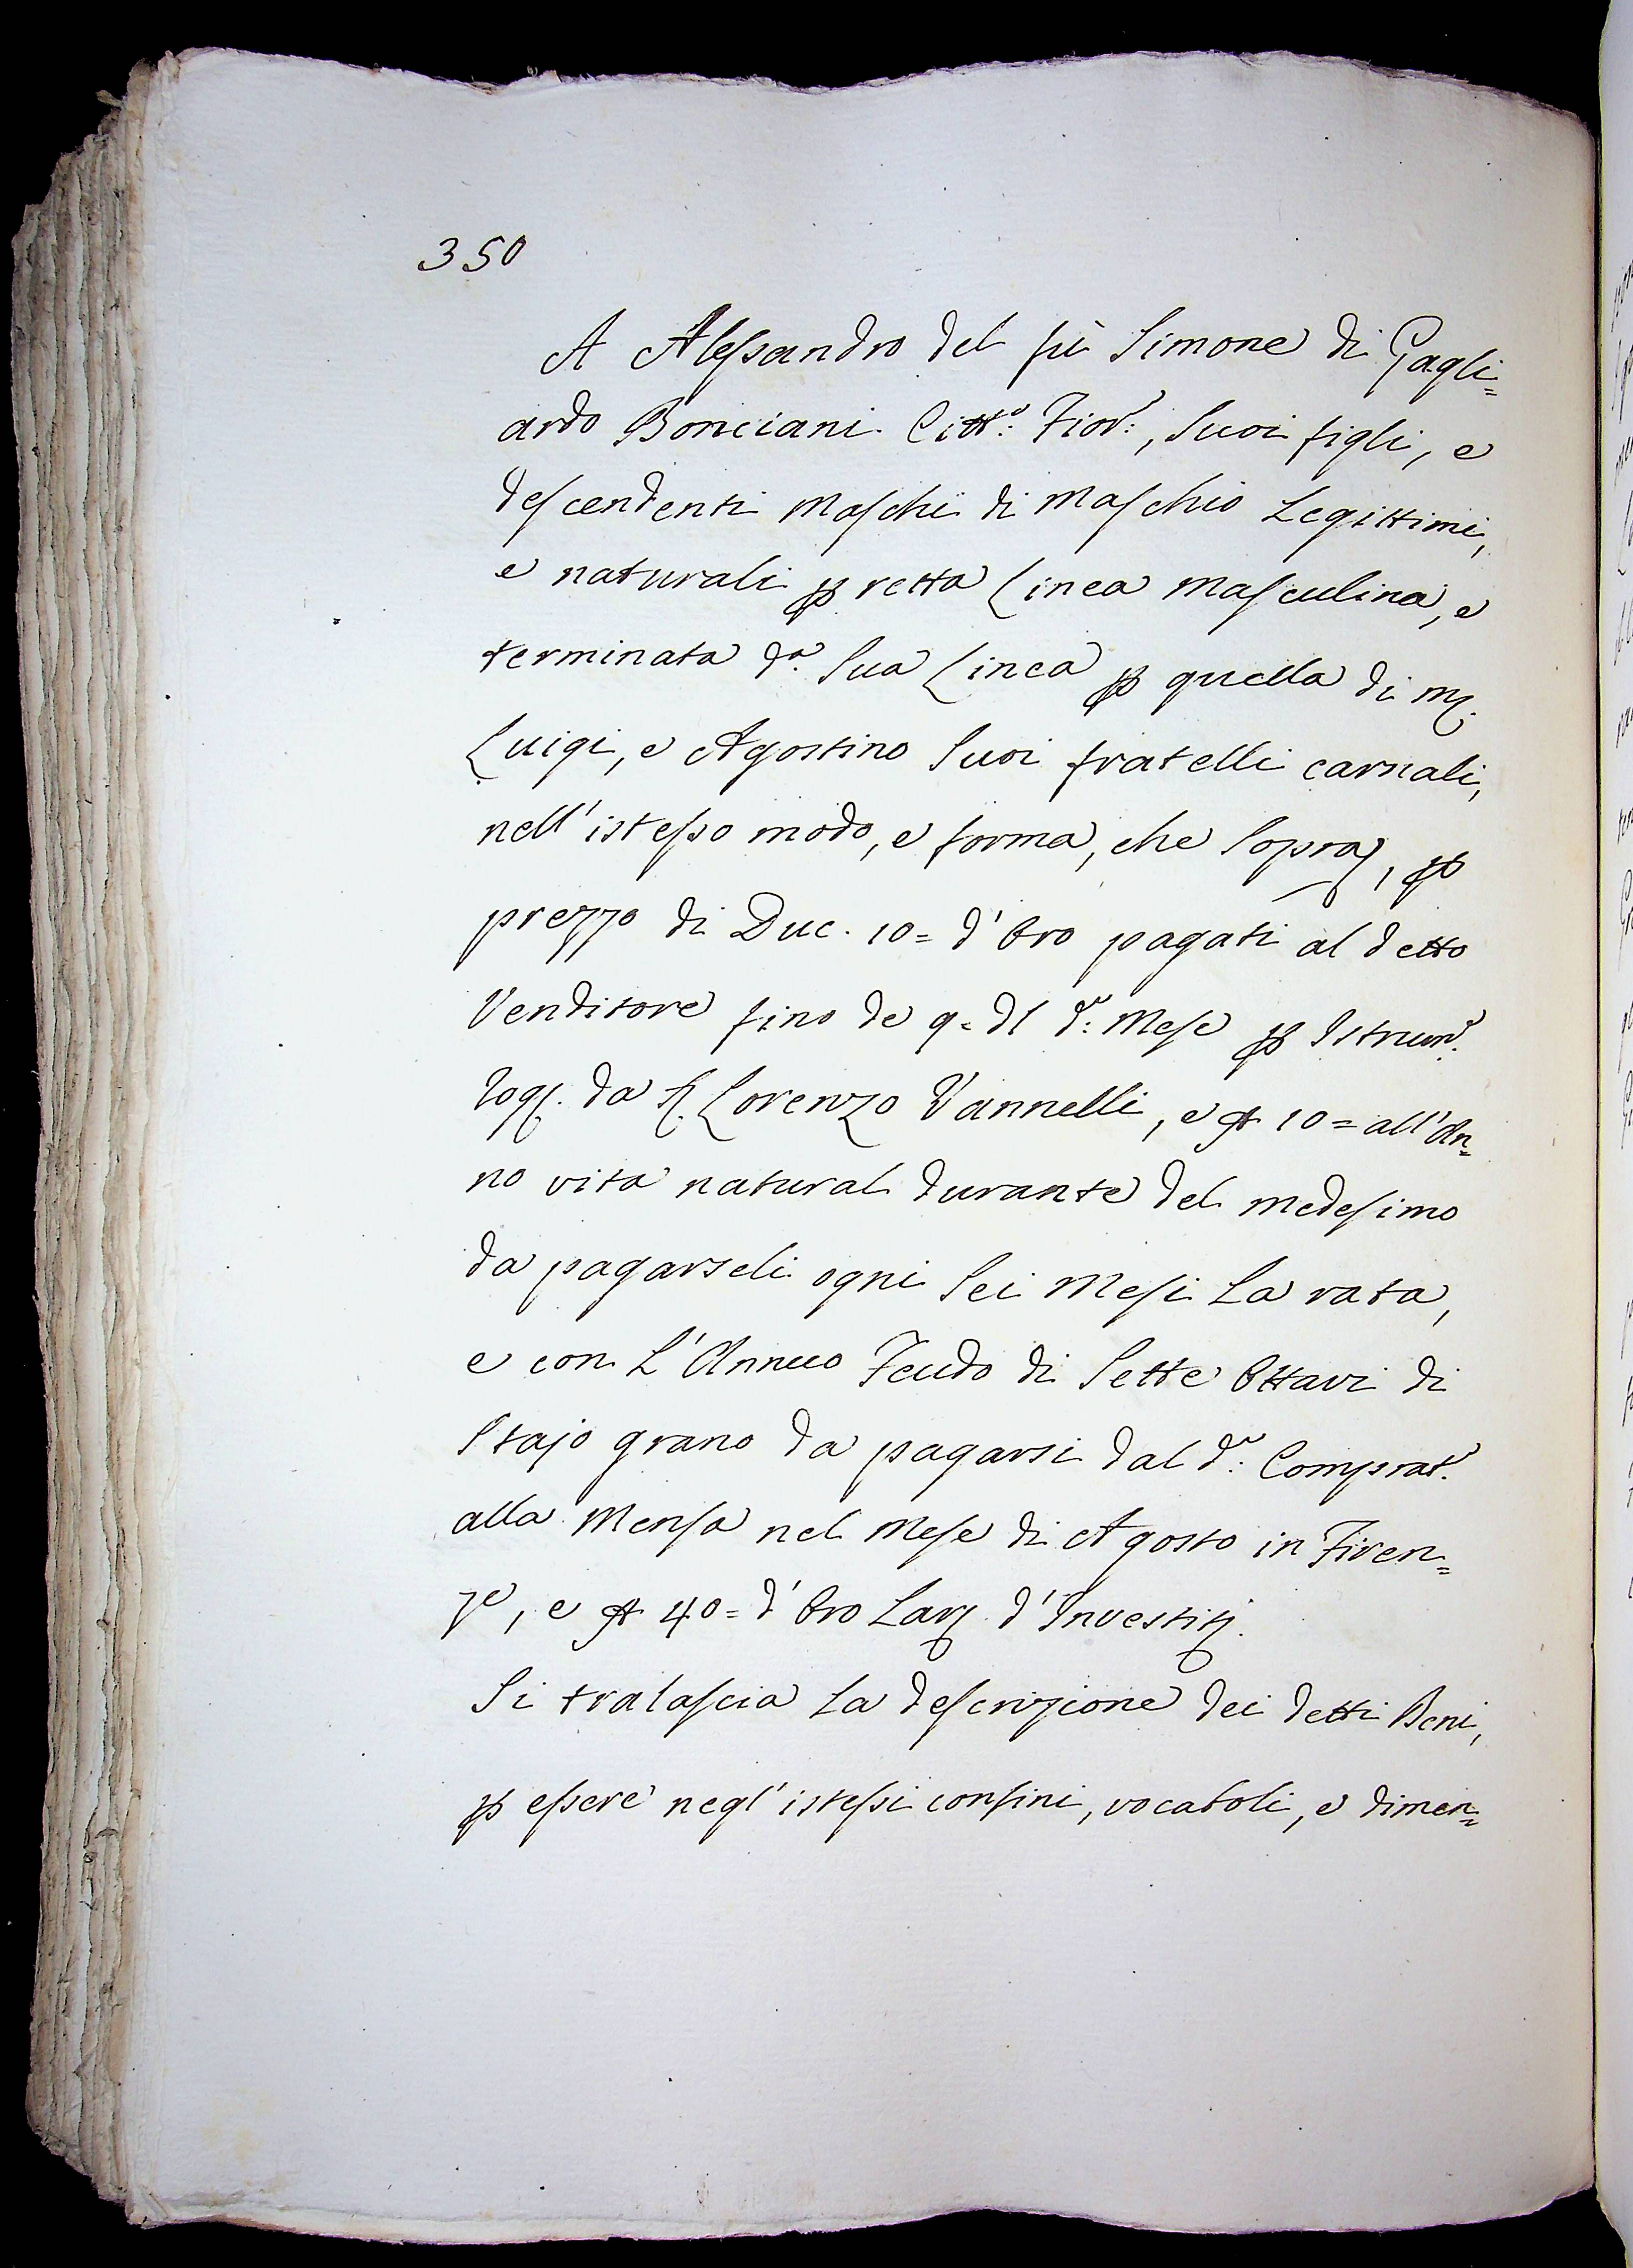 350
A Alessandro del fù Simone di Gagli=
ardo Bonciani Citt.º Fior.º, Suoi figli, e
descendenti Maschi di Maschio Legittimi,
e naturali p retta Linea Masculina, e
terminata d.ª Sua Linea p quella di M.
Luigi, e Agostino Suoi fratelli carnali,
nell'istesso modo, e forma, che Sopra, p
prezzo di Duc. 10= d'Oro pagati al detto
Venditore fino de 9= dl d.º Mese p Istrum.º
Rog. da S. Lorenzo Vannelli, e 10= all'An=
no vita natural durante del medesimo
da pagarseli ogni Sei Mesi La rata,
e con L'Annuo Feudo di Sette Ottavi di
Stajo grano da pagarsi dal d.º Comprat.º
alla Mensa nel Mese di Agosto in Firen=
ze, e 40= d'Oro Larg. d'Investit.
Si tralascia La descrizione dei detti Beni,
p essere negl'istessi confini, vocaboli, e dimen=